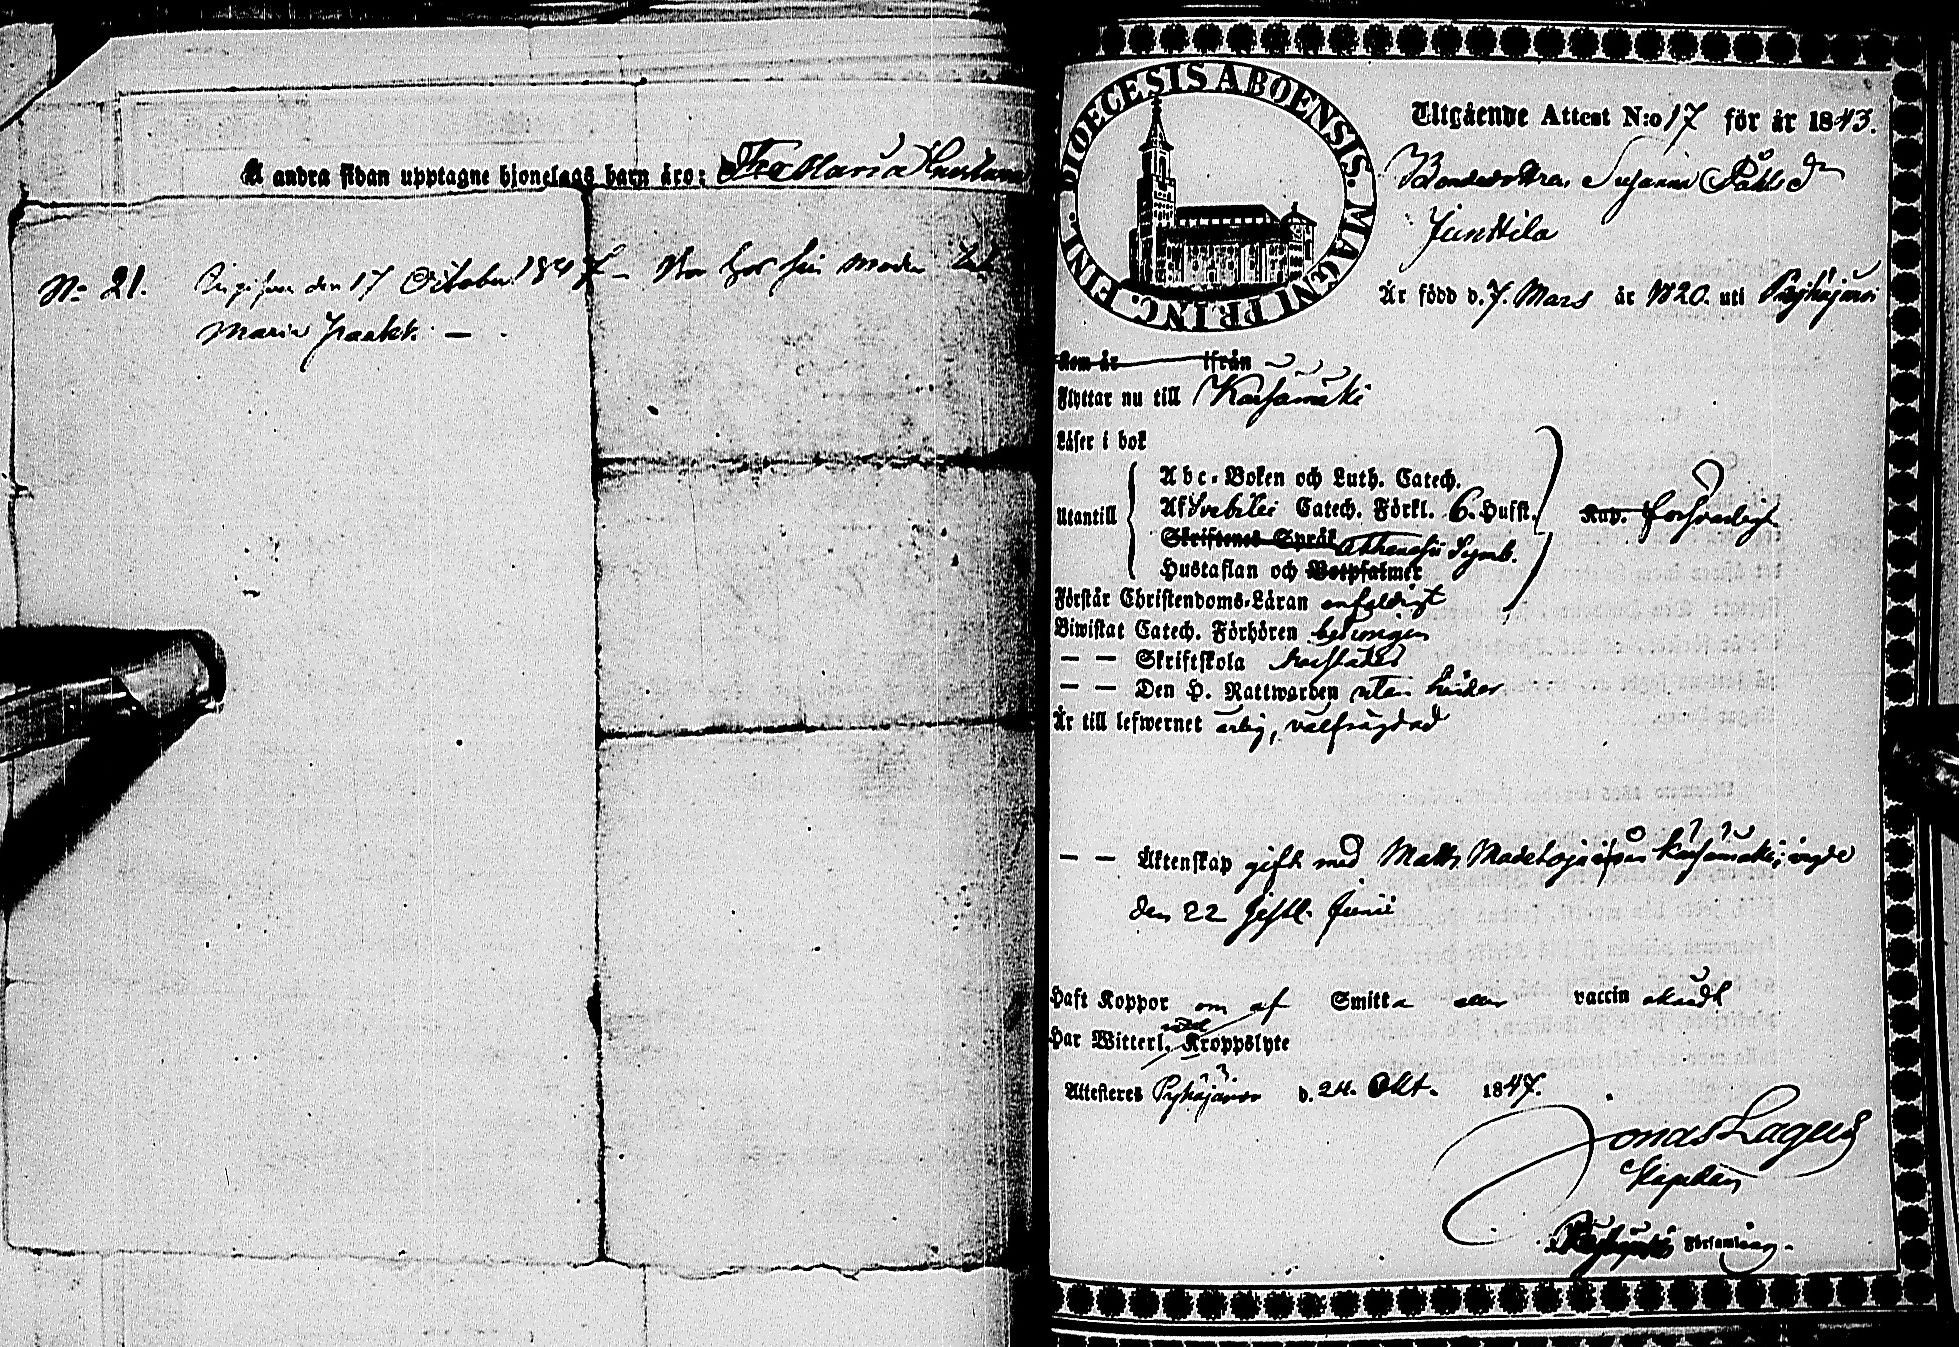 Å andra sidan upptagne hjonelags barn äro:
No 21. den 17 October 184 – Bor hos sin moder
Maria –
DIOECESIS ABOENSIS. MAGNI PRINC. FINL.
Utgående Attest N:o 17 för år 1843.
Bondedottren Susanna Påhlsdr
Junttila
Är född d. 7. Mars år 1820. uti Pyhäjärvi
Kom år ifrån
Flyttar nu till Kärsämäki
Läser i bok
Abc-Boken och Luth. Catech.
Utantill Af Svebilii Catech. Förkl. 6. Hufst. Kap. försvarligt
Skriftenes Språk Athanasii Symb.
Hustaflan och Botpsalmer
Förstår Christendoms-Läran enfaldigt
Biwistat Catech. Förhören
— — Skriftskola
— — Den H. Nattwarden utan hinder
Är till lefwernet ärlig, välfrägdad
— — Äktenskap gift med Matts Madetoja ifrån Kärsämäki, vigde
den 22 sistl. Junii
Haft Koppor om af Smitta eller vaccin okändt
Har Witterl. Kroppslyte
Attesteres Pyhäjärvi d. 24. Okt. 1847.
Jonas Lagus
Kapellan
Pyhäjärvi Församling.